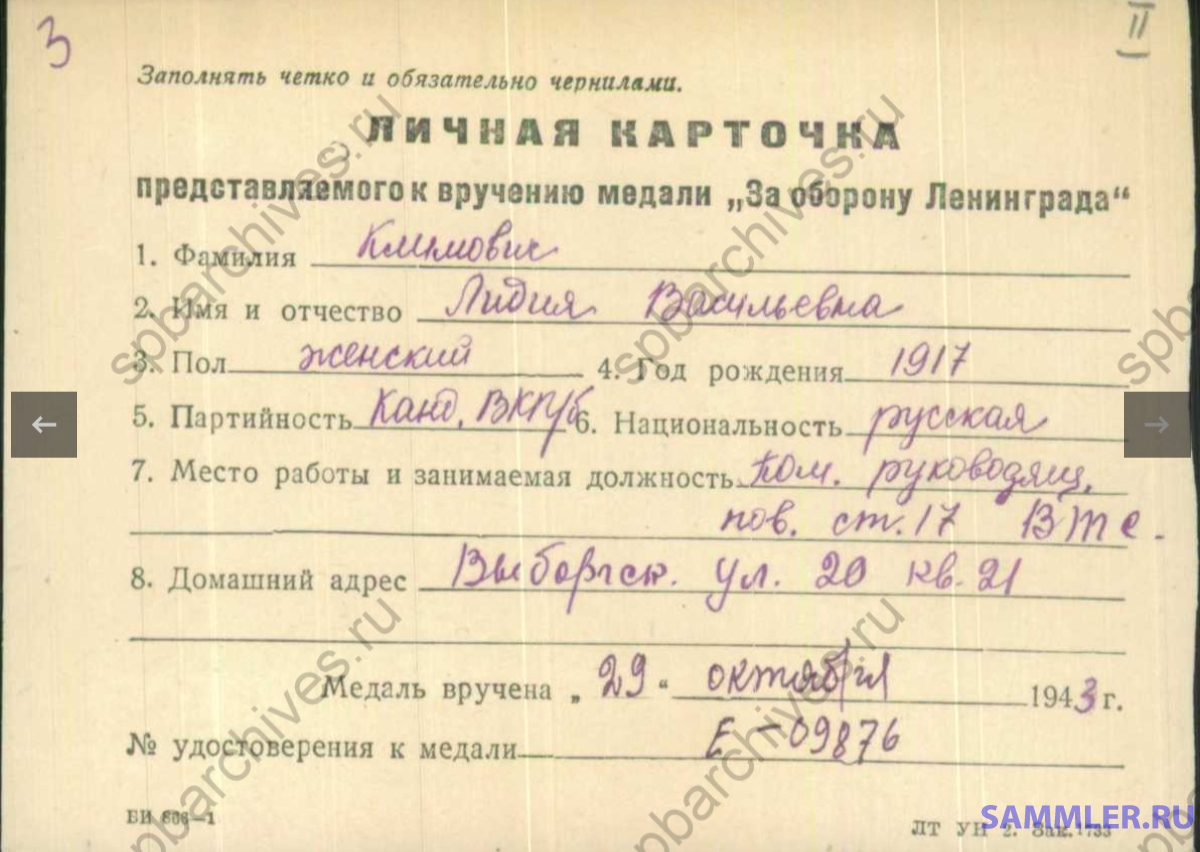 3
II
Заполнять четко и обязательно чернилами.
ЛИЧНАЯ КАРТОЧКА
представляемого к вручению медали „За оборону Ленинграда“
1. Фамилия Климович
2. Имя и отчество Лидия Васильевна
3. Пол женский 4. Год рождения 1917
5. Партийность Канд. ВКП/б 6. Национальность русская
7. Место работы и занимаемая должность Пом. руководящ.
пов. ст. 17 ВТС.
8. Домашний адрес Выборгск. ул. 20 кв. 21
Медаль вручена „29“ октября 1943 г.
№ удостоверения к медали Е-09876
БИ 866—1
ЛТ УН 2. Зак. 1733
SAMMLER.RU
spbarchives.ru
spbarchives.ru
spbarchives.ru
spbarchives.ru